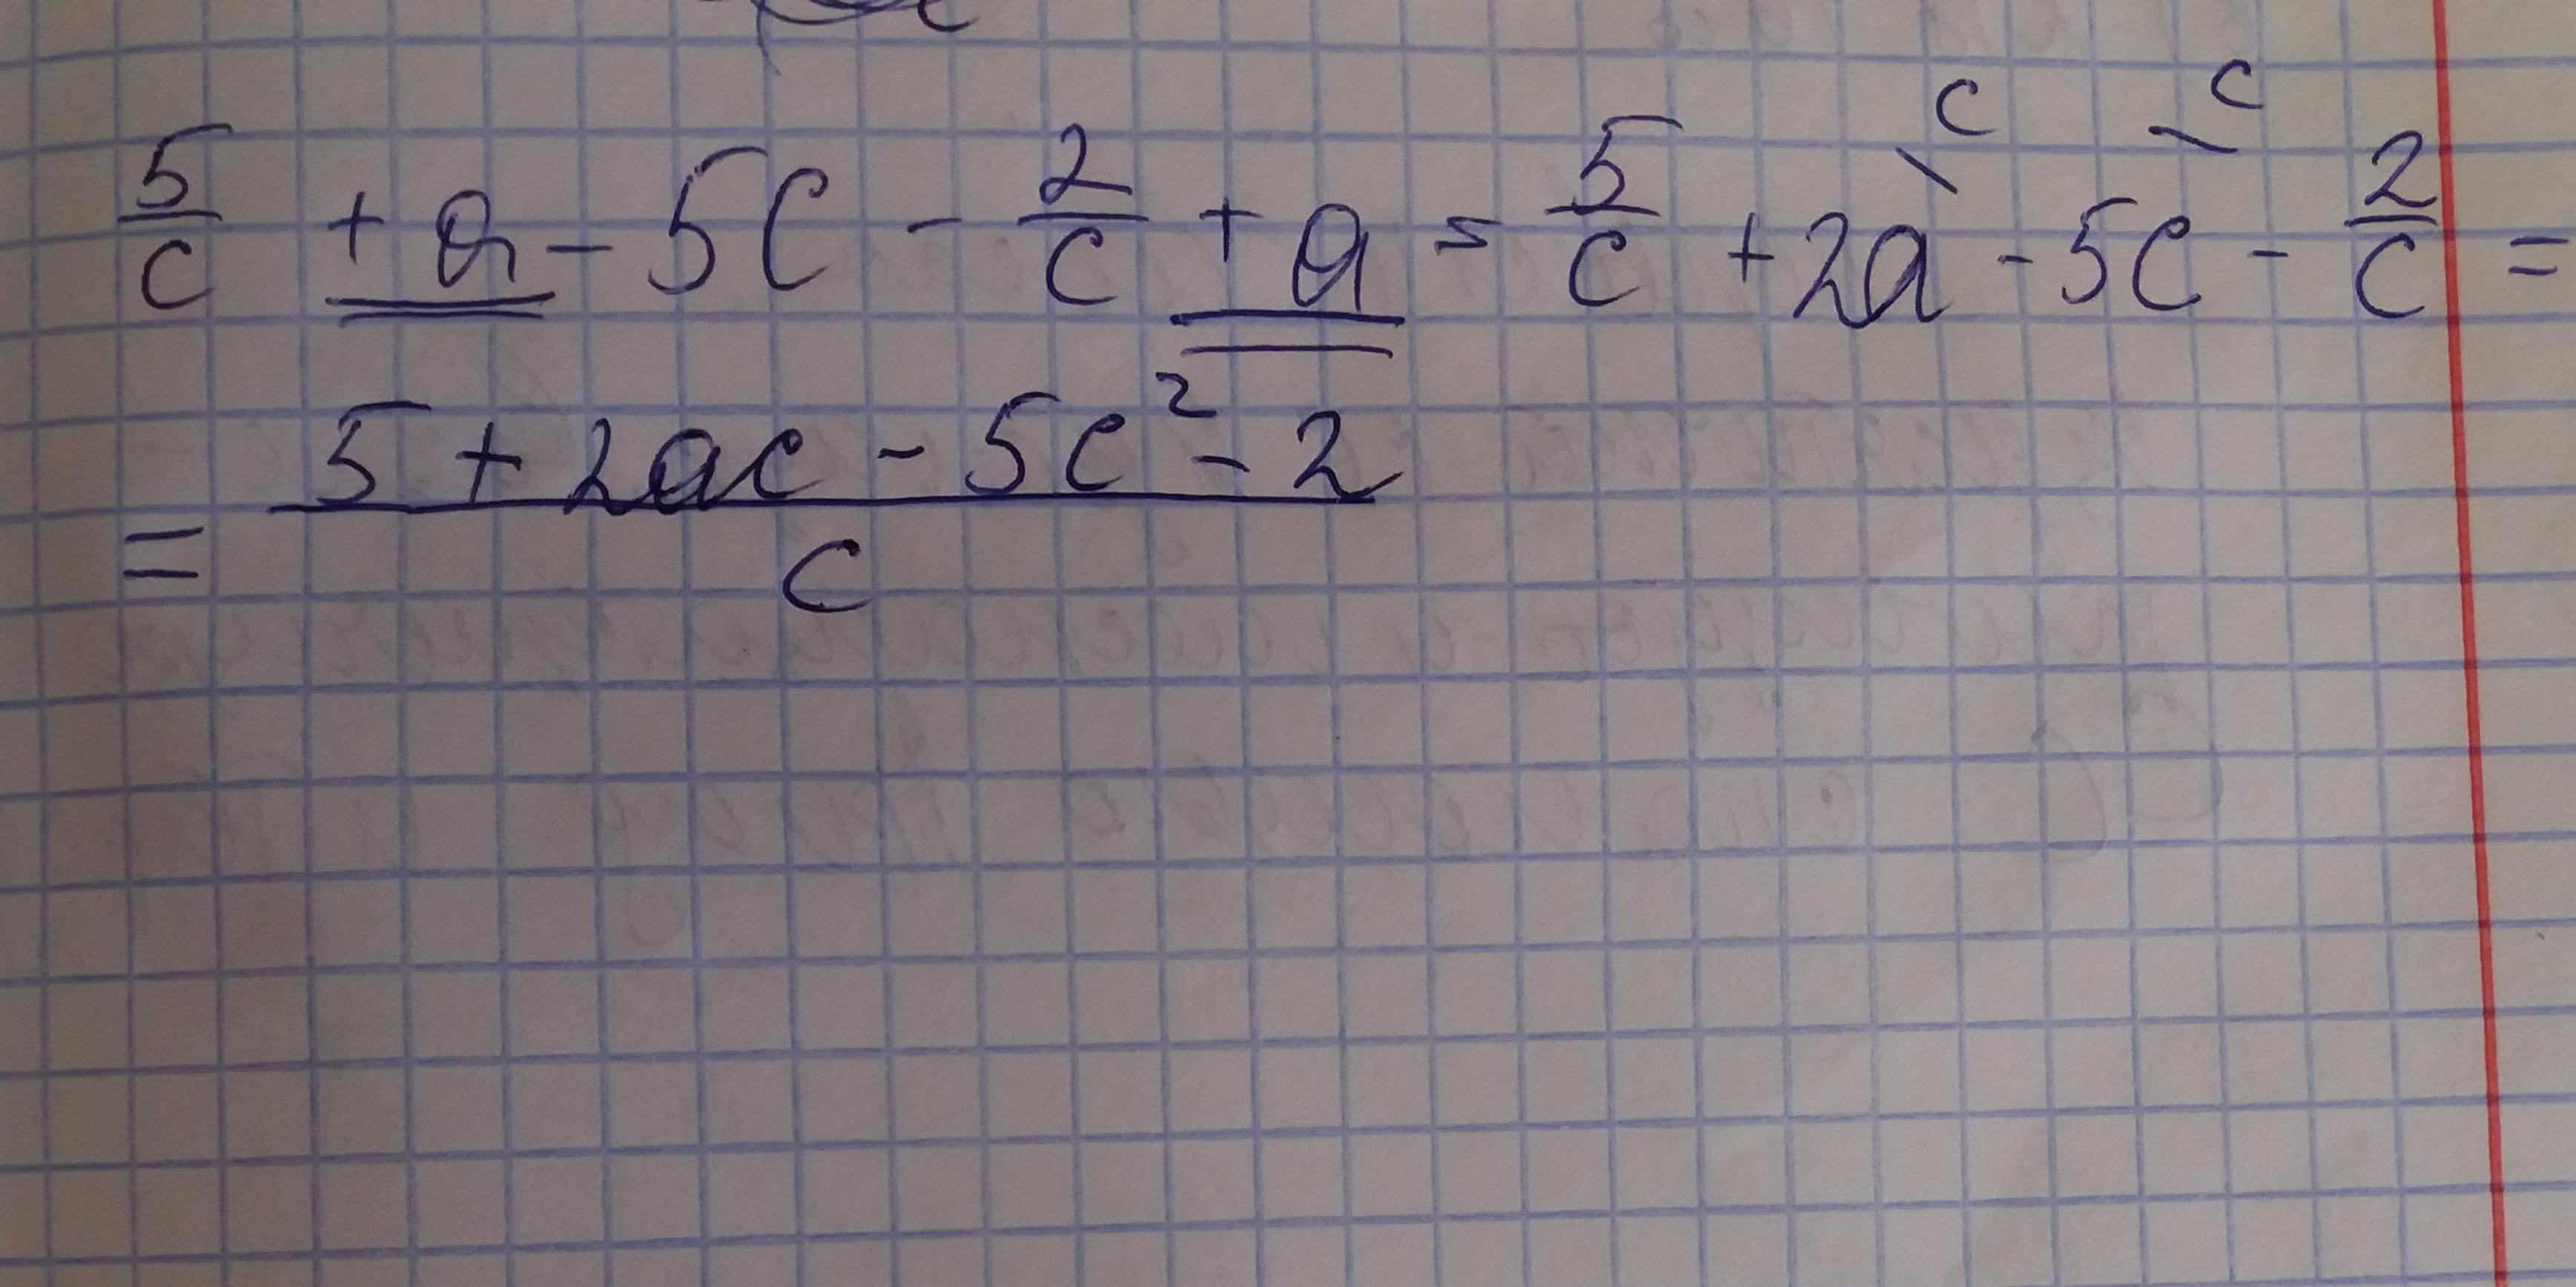 5/c + a - 5c - 2/c + a = 5/c + 2a\c - 5c\c - 2/c =
= (5 + 2ac - 5c² - 2)/c